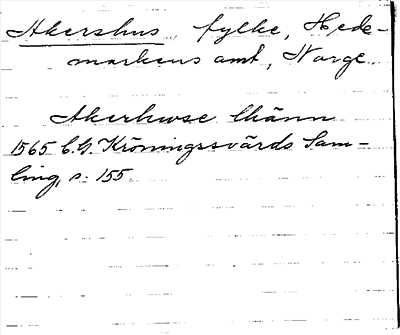 Akershus, fylke, Hede-
markens amt, Norge.
Akerhwse lhänn
1565 C.G. Kröningssvärds Sam-
ling, s. 155.